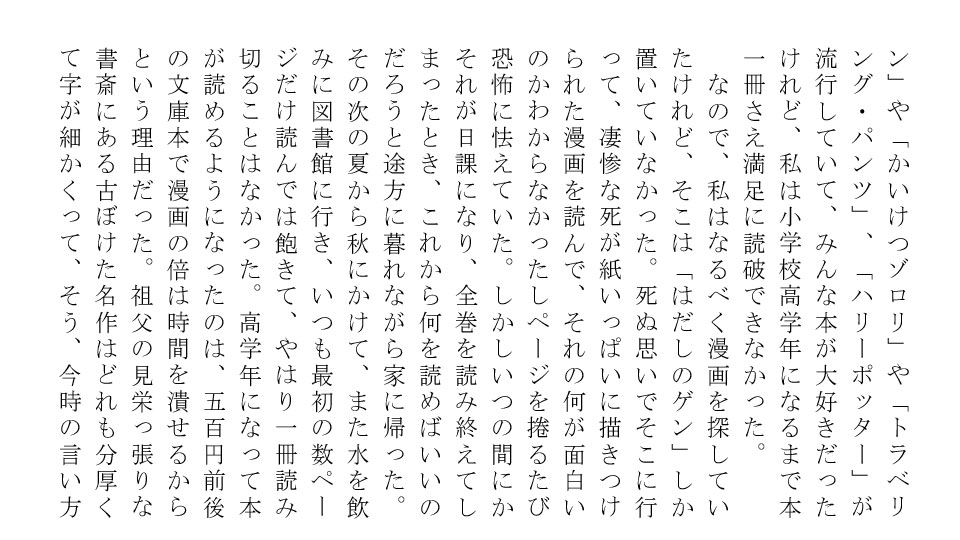 ン」や「かいけつゾロリ」や「トラベリ
ング・パンツ」、「ハリーポッター」が
流行していて、みんな本が大好きだった
けれど、私は小学校高学年になるまで本
一冊さえ満足に読破できなかった。
　なので、私はなるべく漫画を探してい
たけれど、そこは「はだしのゲン」しか
置いていなかった。死ぬ思いでそこに行
って、凄惨な死が紙いっぱいに描きつけ
られた漫画を読んで、それの何が面白い
のかわからなかったしページを捲るたび
恐怖に怯えていた。しかしいつの間にか
それが日課になり、全巻を読み終えてし
まったとき、これから何を読めばいいの
だろうと途方に暮れながら家に帰った。
その次の夏から秋にかけて、また水を飲
みに図書館に行き、いつも最初の数ペー
ジだけ読んでは飽きて、やはり一冊読み
切ることはなかった。高学年になって本
が読めるようになったのは、五百円前後
の文庫本で漫画の倍は時間を潰せるから
という理由だった。祖父の見栄っ張りな
書斎にある古ぼけた名作はどれも分厚く
て字が細かくって、そう、今時の言い方